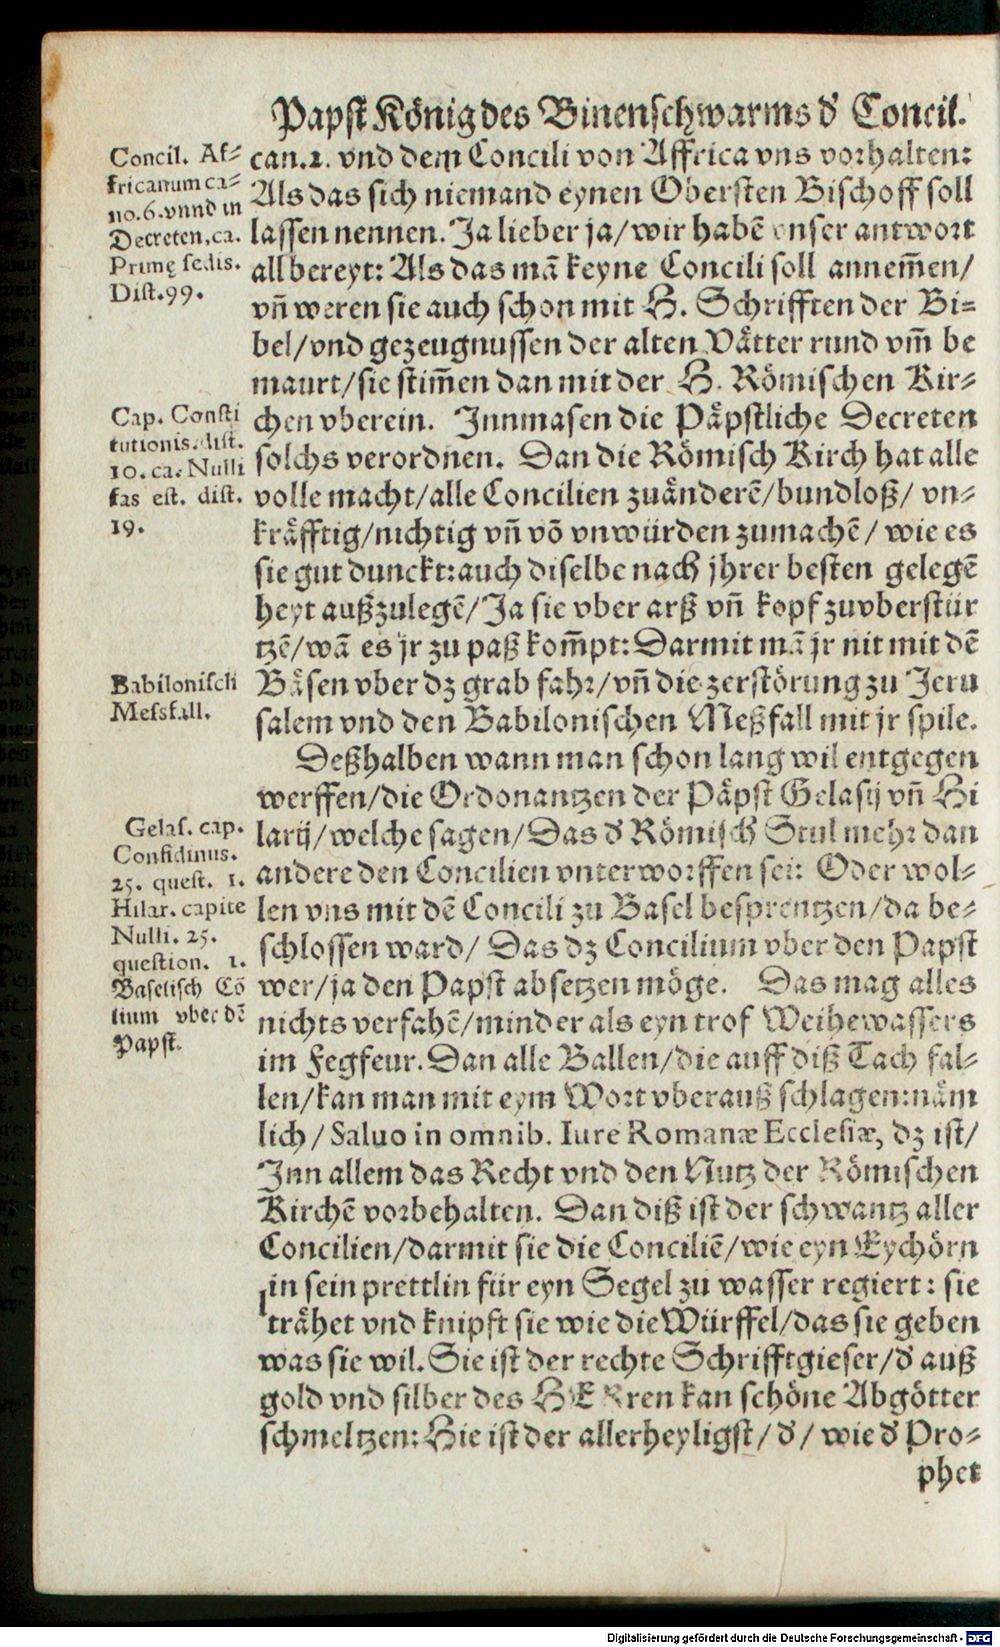 Papst König des Binenschwarms d' Concil.
Concil. Af-
fricanum ca-
no. 6. vnnd in
Decreten, ca.
Primę sedis.
Dist. 99.
can. 2. vnd dem Concili von Affrica vns vorhalten:
Als das sich niemand eynen Obersten Bischoff soll
lassen nennen. Ja lieber ja/ wir habē vnser antwort
all bereyt: Als das mā keyne Concili soll annem̄en/
vn̄ weren sie auch schon mit H. Schrifften der Bi-
bel/ vnd gezeugnussen der alten Vätter rund vm̄ be
maurt/ sie stim̄en dan mit der H. Römischen Kir-
Cap. Consti
tutionis. dist.
10. ca. Nulli
fas est. dist.
19.
chen vberein. Innmasen die Päpstliche Decreten
solchs verordnen. Dan die Römisch Kirch hat alle
volle macht/ alle Concilien zuänderē/ bundloß/ vn-
kräfftig/ nichtig vn̄ vō vnwürden zumachē/ wie es
sie gut dunckt: auch diselbe nach jhrer besten gelegē
heyt außzulegē/ Ja sie vber arß vn̄ kopf zuvberstür
tzē/ wā es jr zu paß kom̄pt: Darmit mā jr nit mit dē
Babilonisch
Messfall.
Bäsen vber dz grab fahr/ vn̄ die zerstörung zu Jeru
salem vnd den Babilonischen Meßfall mit jr spile.
Deßhalben wann man schon lang wil entgegen
werffen/ die Ordonantzen der Päpst Gelasij vn̄ Hi
Gelas. cap.
Confidinus.
25. quest. 1.
Hilar. capite
Nulli. 25.
question. 1.
Baselisch Cō
lium vber dē
Papst.
larij/ welche sagen/ Das d' Römisch Stul mehr dan
andere den Concilien vnterworffen sei: Oder wol-
len vns mit dē Concili zu Basel besprentzen/ da be-
schlossen ward/ Das dz Concilium vber den Papst
wer/ ja den Papst absetzen möge. Das mag alles
nichts verfahē/ minder als eyn trof Weihewassers
im Fegfeur. Dan alle Ballen/ die auff diß Tach fal-
len/ kan man mit eym Wort vberauß schlagen: näm
lich/ Saluo in omnib. Iure Romanæ Ecclesiæ, dz ist/
Inn allem das Recht vnd den Nutz der Römischen
Kirchē vorbehalten. Dan diß ist der schwantz aller
Concilien/ darmit sie die Conciliē/ wie eyn Eychörn
in sein prettlin für eyn Segel zu wasser regiert: sie
trähet vnd knipft sie wie die Würffel/ das sie geben
was sie wil. Sie ist der rechte Schrifftgieser/ d' auß
gold vnd silber des HERren kan schöne Abgötter
schmeltzen: Hie ist der allerheyligst/ d'/ wie d' Pro-
phet
Digitalisierung gefördert durch die Deutsche Forschungsgemeinschaft - DFG